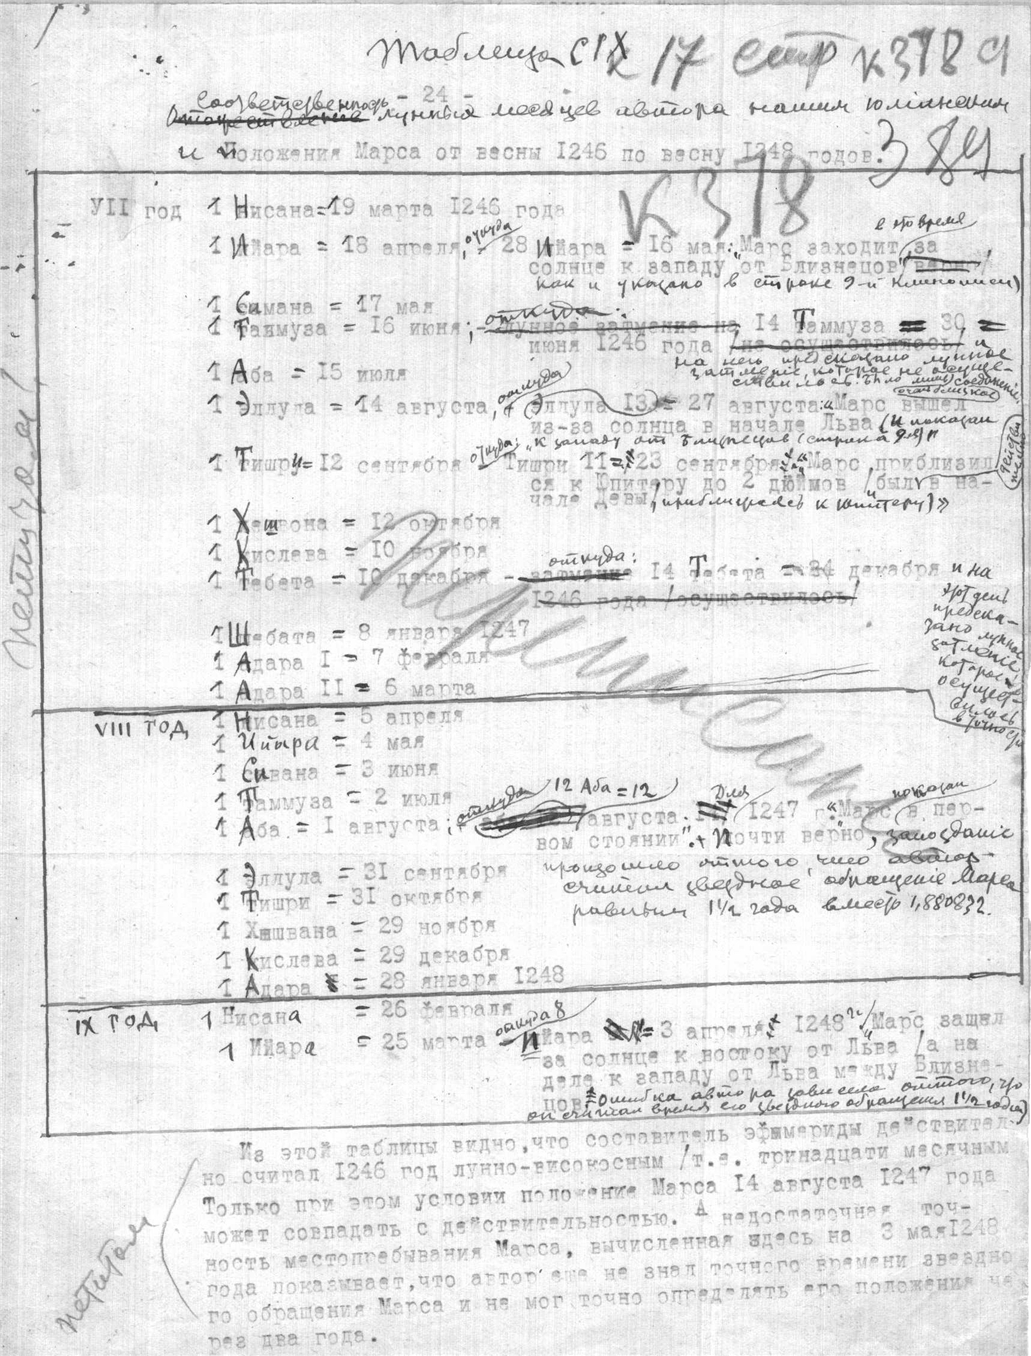 Таблица CIX
17 стр К 378
- 24 -
Соответственность
Отожествление лунных месяцев автора нашим юлианским
и Положения Марса от весны 1246 по весну 1248 годов.
389
К 378
УII год 1 Нисана = 19 марта 1246 года
в то время
1 Ийара = 18 апреля, откуда 28 Ийара = 16 мая: „Марс заходит за
солнце к западу от Близнецов" /верно/
как и указано в строке 9-й клинописи)
1 Симана = 17 мая
откуда:
1 Таммуза = 16 июня; - Лунное затмение на 14 Таммуза = 30 =
июня 1246 года /не осуществилось/ и
на него предсказано лунное
затмение, которое не осуще-
ствилось.
1 Аба = 15 июля
откуда
1 Эллула = 14 августа, Эллула 13 = 27 августа: „Марс вышел
из-за солнца в начале Льва (и показан
откуда: к западу от Близнецов (строка
1 Тишри = 12 сентября Тишри 11 = 23 сентября: „Марс приблизил
ся к Юпитеру до 2 дюймов /был в на-
чале Девы, приближаясь к Юпитеру)»
1 Хешвона = 12 октября
1 Кислева = 10 ноября
откуда:
1 Тебета = 10 декабря - затмение 14 Тебета = 24 декабря и на
1246 года /осуществилось/
этот день
предска-
зано лунное
затмение
которое и
осущест-
вилось
в точности
1 Шебата = 8 января 1247
1 Адара I = 7 февраля
1 Адара II = 6 марта
Переписано
VIII год 1 Нисана = 5 апреля
1 Ийара = 4 мая
1 Сивана = 3 июня
1 Таммуза = 2 июля
откуда 12 Аба = 12 Для показан
1 Аба = 1 августа; августа. 1247 г. „Марс в пер-
вом стоянии". Почти верно, запоздание
произошло оттого, что автор
считал звездное обращение Марса
равным 1½ года вместо 1,880832.
1 Эллула = 31 сентября
1 Тишри = 31 октября
1 Хешвана = 29 ноября
1 Кислева = 29 декабря
1 Адара = 28 января 1248
IX год 1 Нисана = 26 февраля
1 Ийара = 25 марта откуда 8 Ийара = 3 апреля 1248 г. /Марс зашел
за солнце к востоку от Льва /а на
деле к западу от Льва между Близне-
цов = ошибка автора зависела оттого, что
он считал время его звездного обращения 1½ года)
Из этой таблицы видно, что составитель эфимериды действитель-
но считал 1246 год лунно-високосным /т.е. тринадцати месячным
Только при этом условии положение Марса 14 августа 1247 года
может совпадать с действительностью. А недостаточная точ-
ность местопребывания Марса, вычисленная здесь на 3 мая 1248
года показывает, что автор еще не знал точного времени звездно
го обращения Марса и не мог точно определять его положения че
рез два года.